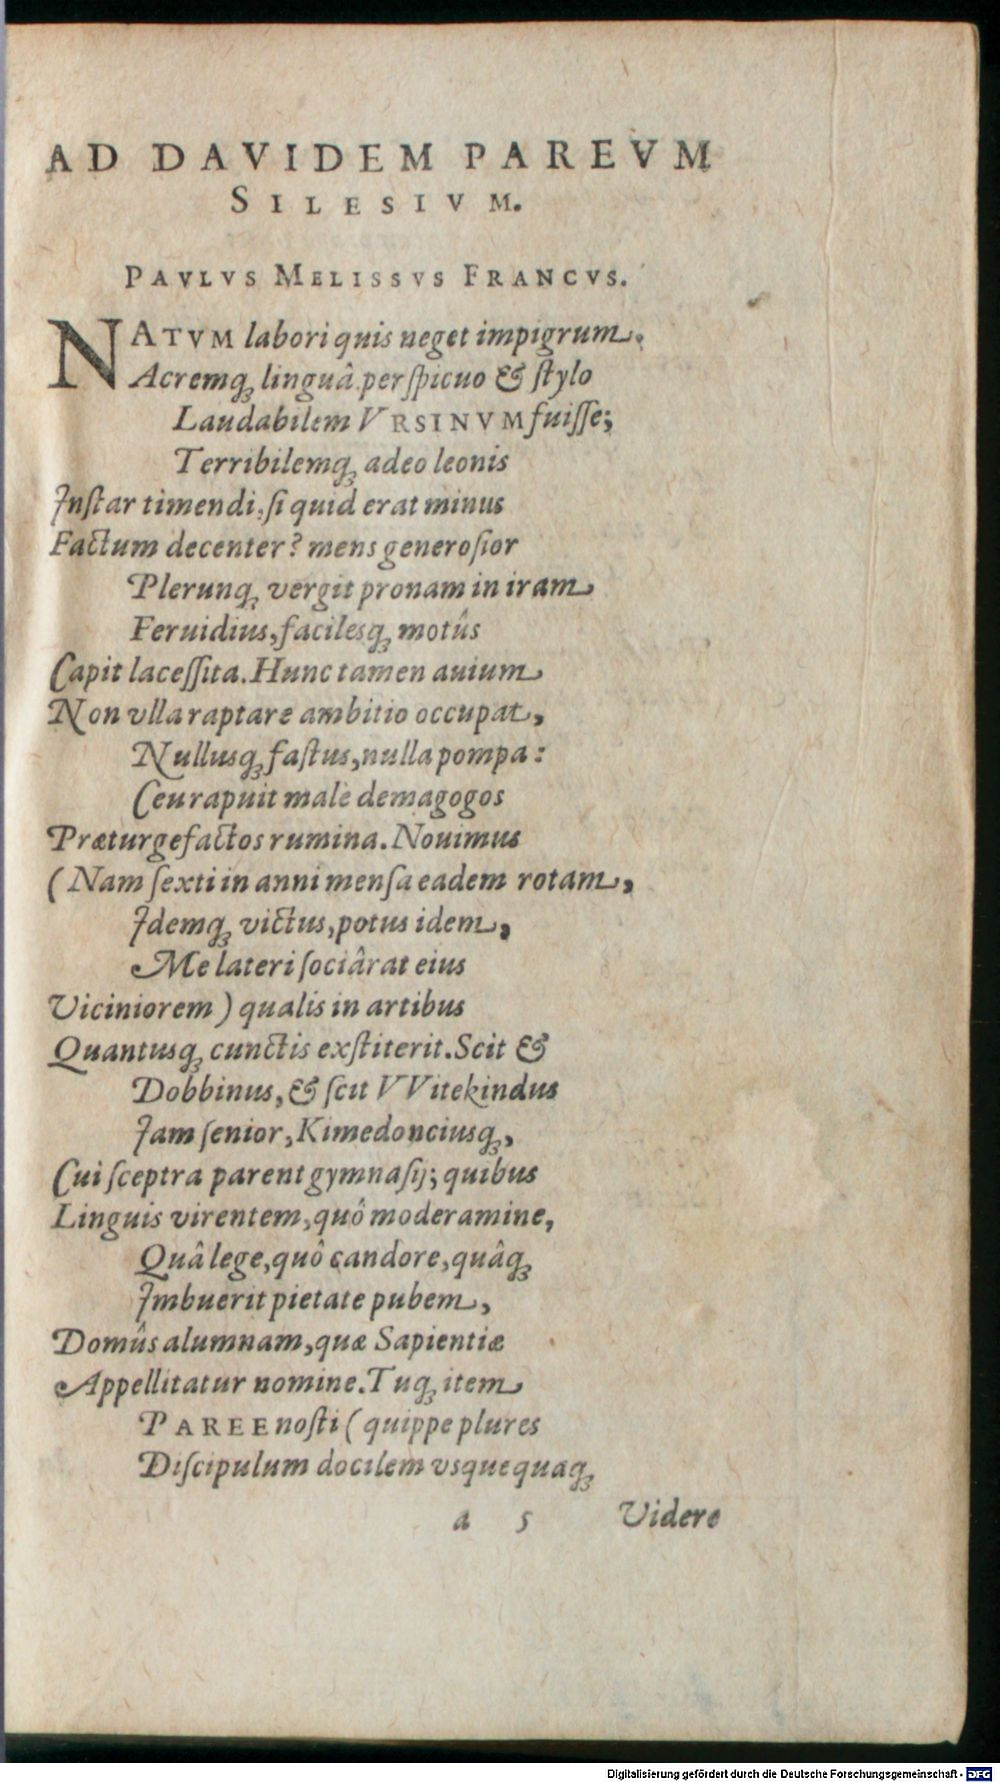 AD DAVIDEM PAREVM
SILESIVM.
PAVLVS MELISSVS FRANCVS.
NATVM labori quis neget impigrum,
Acremq́; linguâ perspicuo & stylo
Laudabilem VRSINVM fuisse;
Terribilemq́; adeo leonis
Instar timendi, si quid erat minus
Factum decenter? mens generosior
Plerunq́; vergit pronam in iram
Feruidius, facilesq́; motûs
Capit lacessita. Hunc tamen auium
Non vlla raptare ambitio occupat,
Nullusq́; fastus, nulla pompa:
Ceu rapuit malè demagogos
Præturgefactos rumina. Nouimus
(Nam sexti in anni mensa eadem rotam,
Idemq́; victus, potus idem,
Me lateri sociârat eius
Viciniorem) qualis in artibus
Quantusq́; cunctis exstiterit. Scit &
Dobbinus, & scit VVitekindus
Iam senior, Kimedonciusq́;,
Cui sceptra parent gymnasij; quibus
Linguis virentem, quô moderamine,
Quâ lege, quô candore, quâq́;
Imbuerit pietate pubem,
Domûs alumnam, quæ Sapientiæ
Appellitatur nomine. Tuq́; item
PAREE nosti (quippe plures
Discipulum docilem vsquequaq́;
a 5 Videre
Digitalisierung gefördert durch die Deutsche Forschungsgemeinschaft - DFG